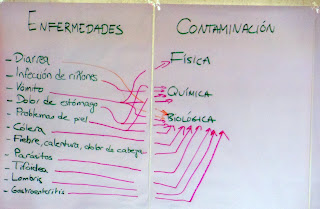 ENFERMEDADES
- Diarrea
- Infección de riñones
- Vómito
- Dolor de estómago
- Problemas de piel
- Cólera
- Fiebre, calentura, dolor de cabeza
- Parásitos
- Tifoidea
- Lombriz
- Gastroenteritis
CONTAMINACIÓN
FÍSICA
QUÍMICA
BIOLÓGICA